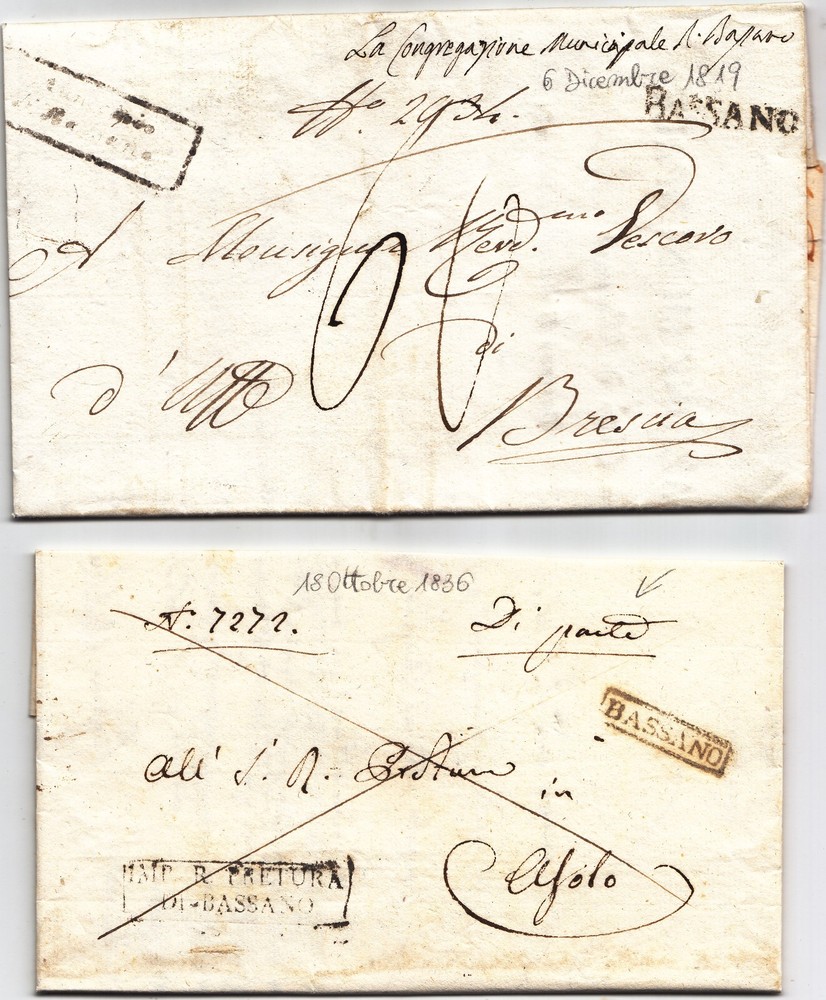 La Congregazione Municipale di Bassano
6 Dicembre 1819
BASSANO
N.o 2934.
A Monsignor Rever.d mo Vescovo
di
d' Uff.o
Brescia
18 Ottobre 1836
N.o 7272.
Di parte
BASSANO
All' I. R. Pretura
in
Asolo
IMP. R. PRETURA
DI BASSANO